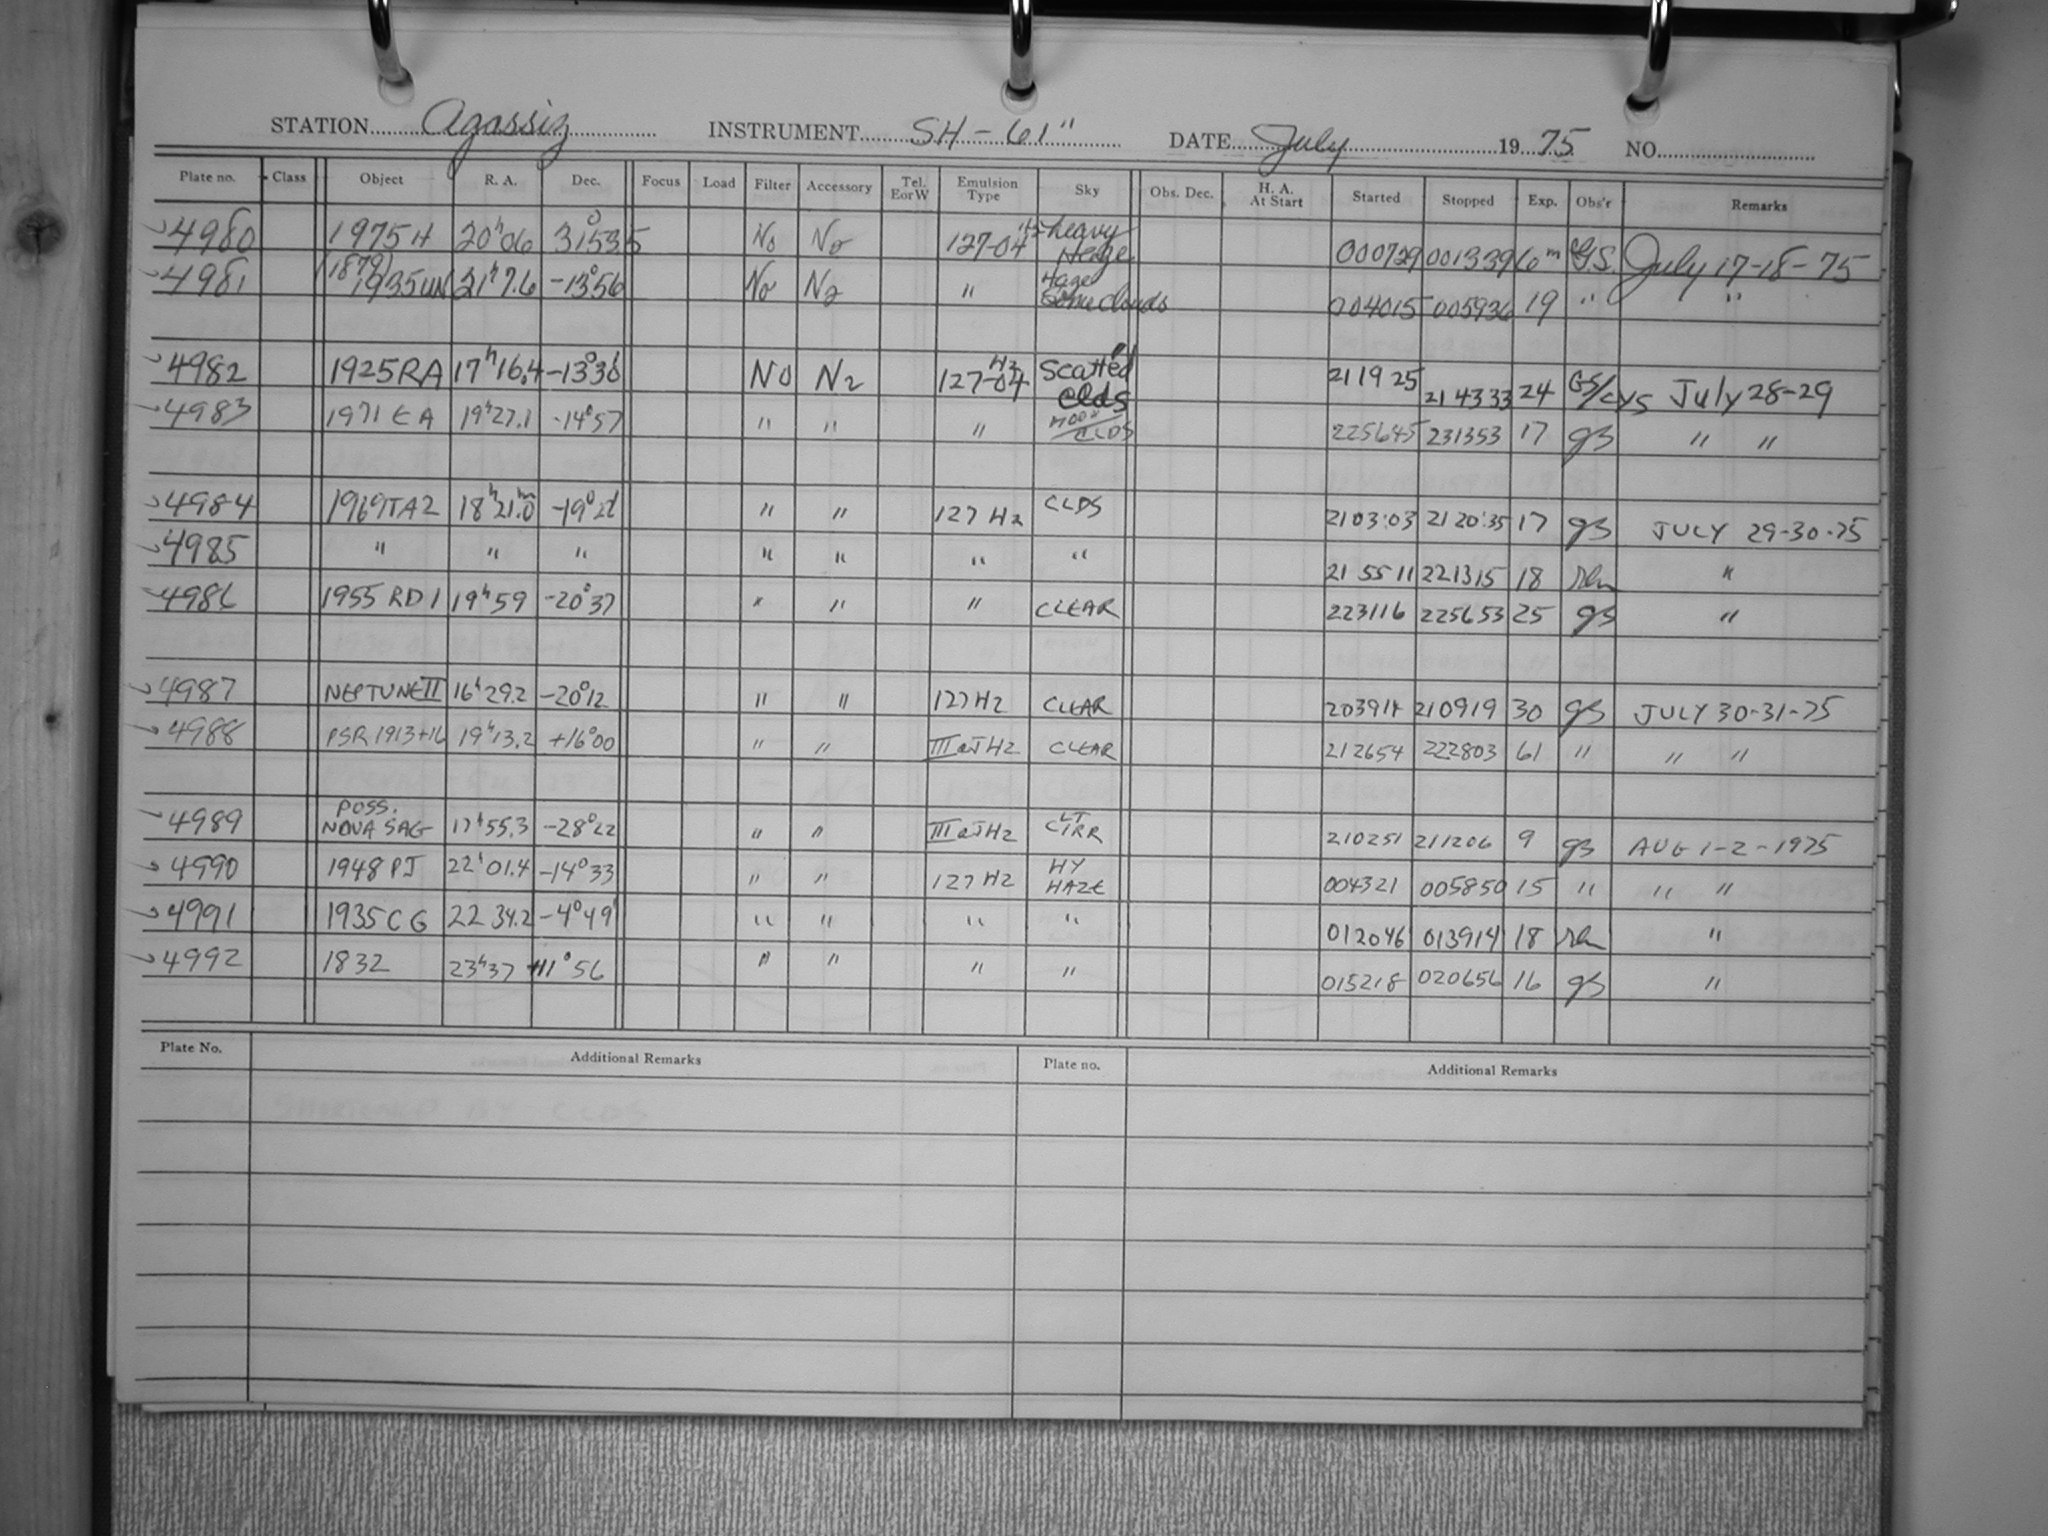 STATION Agassiz INSTRUMENT SH-61" DATE July 1975 NO.
Plate no. Class Object R. A. Dec. Focus Load Filter Accessory Tel. E or W Emulsion Type Sky Obs. Dec. H. A. At Start Started Stopped Exp. Obs'r Remarks
4980 1975H 20h06 No No 127-04 heavy 000729 001339 6m GS. July 17-18-75
4981 (1879) 1935UN 21h7.6 -13°56 No No " Haze Some clouds 004015 005936 19 " "
4982 1925RA 17h16.4 -13°36 No No 127-04 Hz Scatt'd Clds 211925 214333 24 GS/cys July 28-29
4983 1971 EA 19h27.1 -14°57 " " " CLDS 225645 231353 17 gs " "
4984 1969TA2 18h21.0m " " 127 Hz CLDS 2103:03 2120:35 17 gs JULY 29-30-75
4985 " " " " " " " 215511 221315 18 "
4986 1955 RD1 19h59 -20°37 " " " CLEAR 223116 225653 25 gs "
4987 NEPTUNE II 16h29.2 -20°12 " " 127 Hz CLEAR 203914 210919 30 gs JULY 30-31-75
4988 PSR 1913+16 19h13.2 +16°00 " " IIIaJ Hz CLEAR 212654 222803 61 " " "
4989 POSS. NOVA SAG 17h55.3 -28°22 " " IIIaJ Hz LT CIRR 210251 211206 9 gs AUG 1-2-1975
4990 1948 PJ 22h01.4 -14°33 " " 127 Hz HY HAZE 004321 005850 15 " " "
4991 1935CG 22 34.2 -4°49' " " " " 012046 013914 18 "
4992 1832 23h37 +11°56 " " " " 015218 020656 16 gs "
Plate No. Additional Remarks Plate no. Additional Remarks